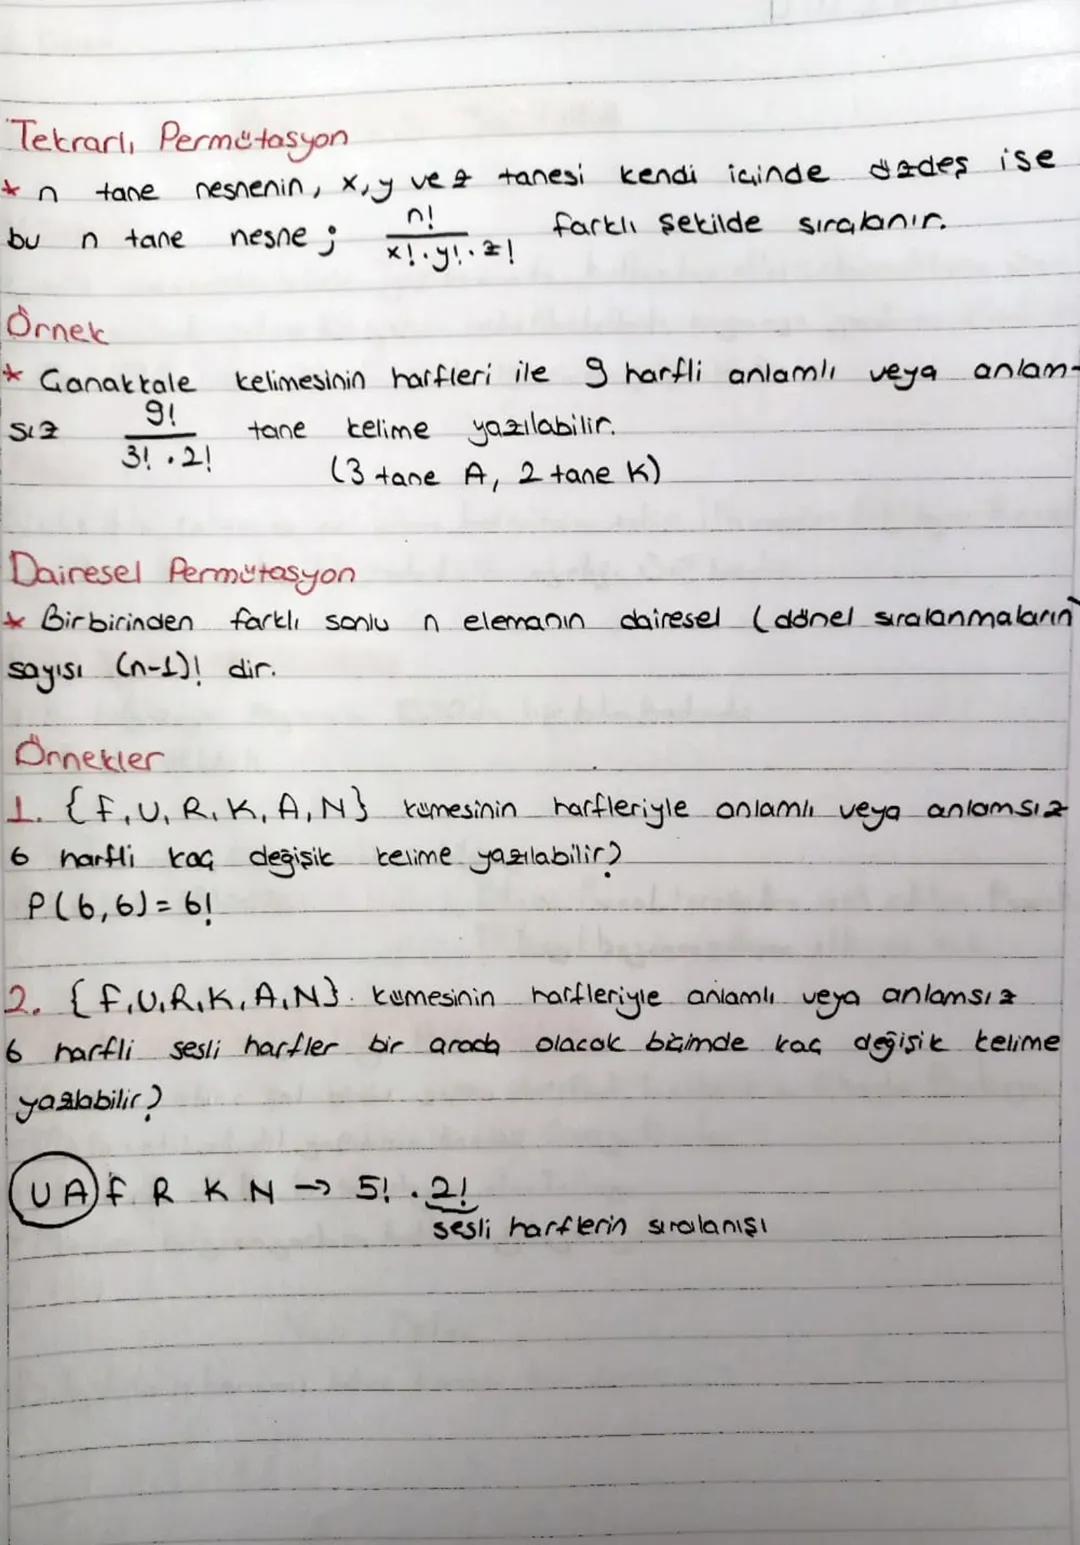 Tekrarlı Permütasyon
* n tane nesnenin, x, y ve z tanesi kendi içinde özdeş ise
bu n tane nesne ; n! / x! . y! . z! farklı şekilde sıralanır.
Örnek
* Çanakkale kelimesinin harfleri ile 9 harfli anlamlı veya anlam-
sız 9! / 3! . 2! tane kelime yazılabilir.
(3 tane A, 2 tane K)
Dairesel Permütasyon
* Birbirinden farklı sonlu n elemanın dairesel (dönel sıralanmaların)
sayısı (n-1)! dir.
Örnekler
1. {F, U, R, K, A, N} kümesinin harfleriyle anlamlı veya anlamsız
6 harfli kaç değişik kelime yazılabilir?
P(6,6) = 6!
2. {F, U, R, K, A, N}. kümesinin harfleriyle anlamlı veya anlamsız
6 harfli sesli harfler bir arada olacak biçimde kaç değişik kelime
yazılabilir?
UA F R K N → 5! . 2!
sesli harflerin sıralanışı